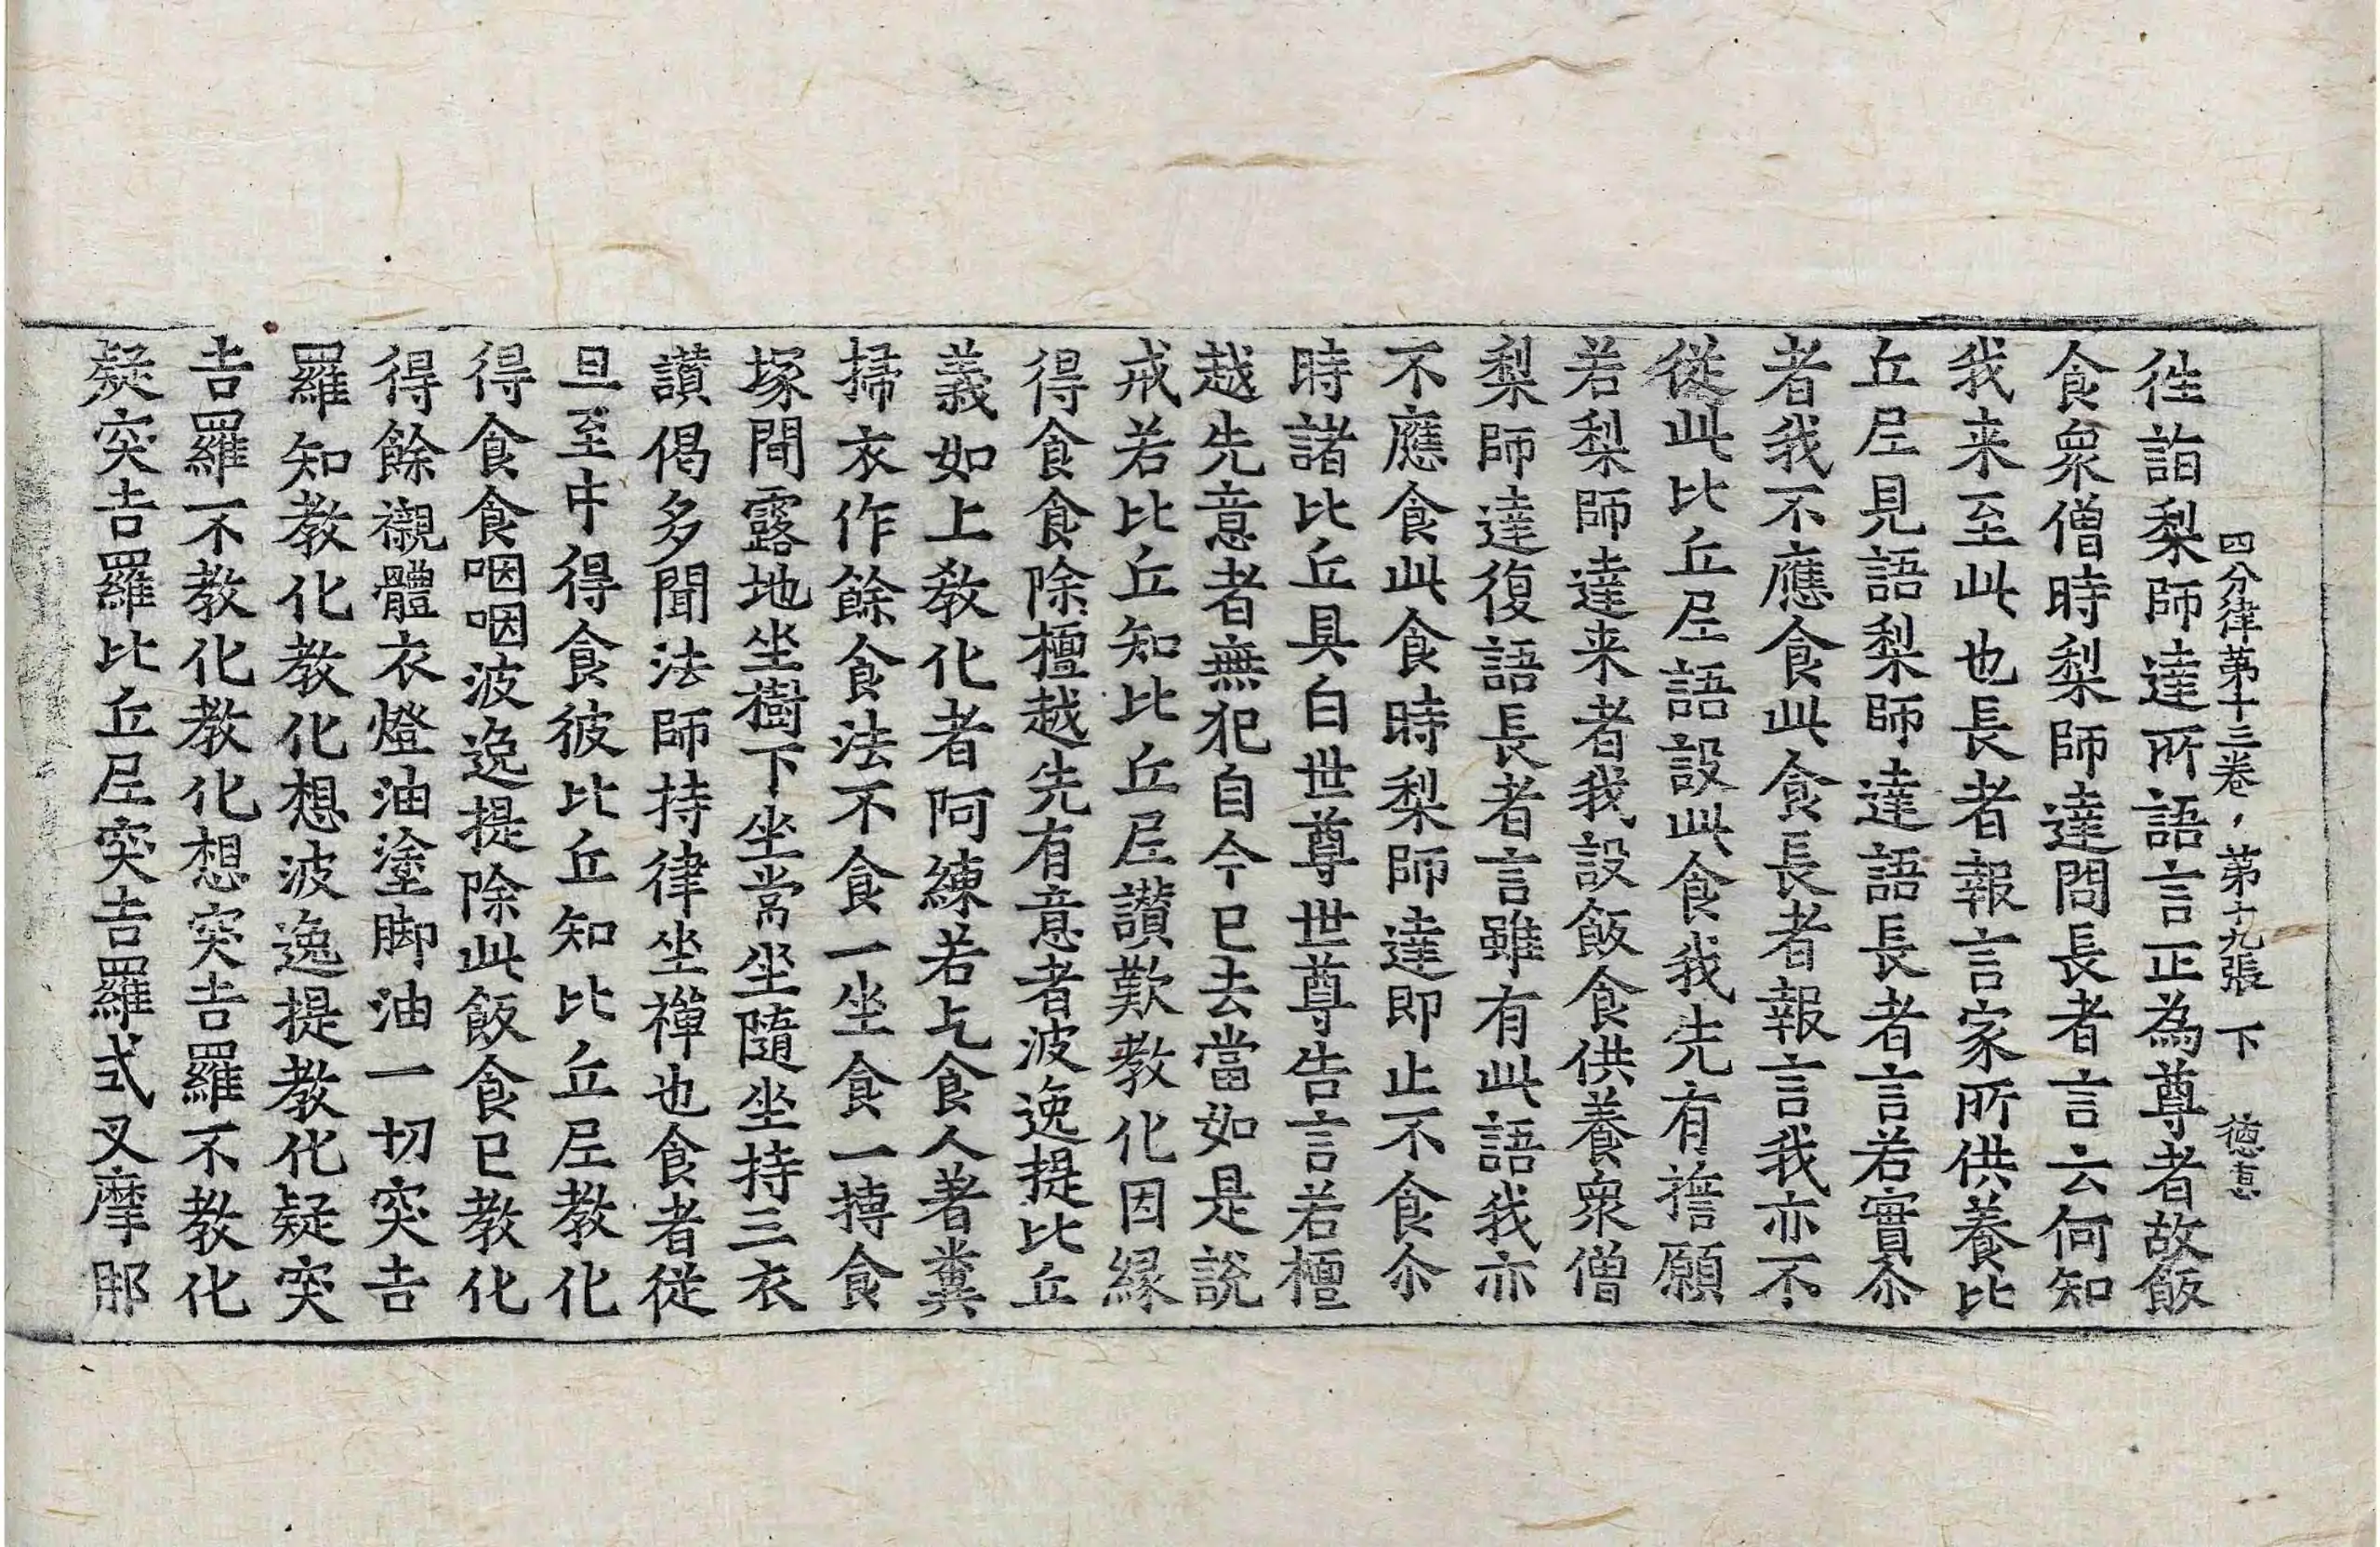 四分律第十三卷，第十九張　下　德真
徃詣梨師達所語言正為尊者故飯
食衆僧時梨師達問長者言云何知
我来至此也長者報言家所供養比
丘尼見語梨師達語長者言若實尒
者我不應食此食長者報言我亦不
從此比丘尼語設此食我先有誓願
若梨師達来者我設飯食供養衆僧
梨師達復語長者言雖有此語我亦
不應食此食時梨師達即止不食尒
時諸比丘具白世尊世尊告言若檀
越先意者無犯自今已去當如是說
戒若比丘知比丘尼讃歎教化因縁
得食食除檀越先有意者波逸提比丘
義如上教化者阿練若乞食人著糞
掃衣作餘食法不食一坐食一摶食
塚間露地坐樹下坐常坐隨坐持三衣
讃偈多聞法師持律坐禪也食者従
旦至中得食彼比丘知比丘尼教化
得食食咽咽波逸提除此飯食已教化
得餘襯體衣燈油塗脚油一切突吉
羅知教化教化想波逸提教化疑突
吉羅不教化教化想突吉羅不教化
疑突吉羅比丘尼突吉羅式叉摩那